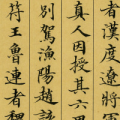 者漢度遼將軍
真人因授其六甲
別駕漁陽趙該
符王魯連者魏